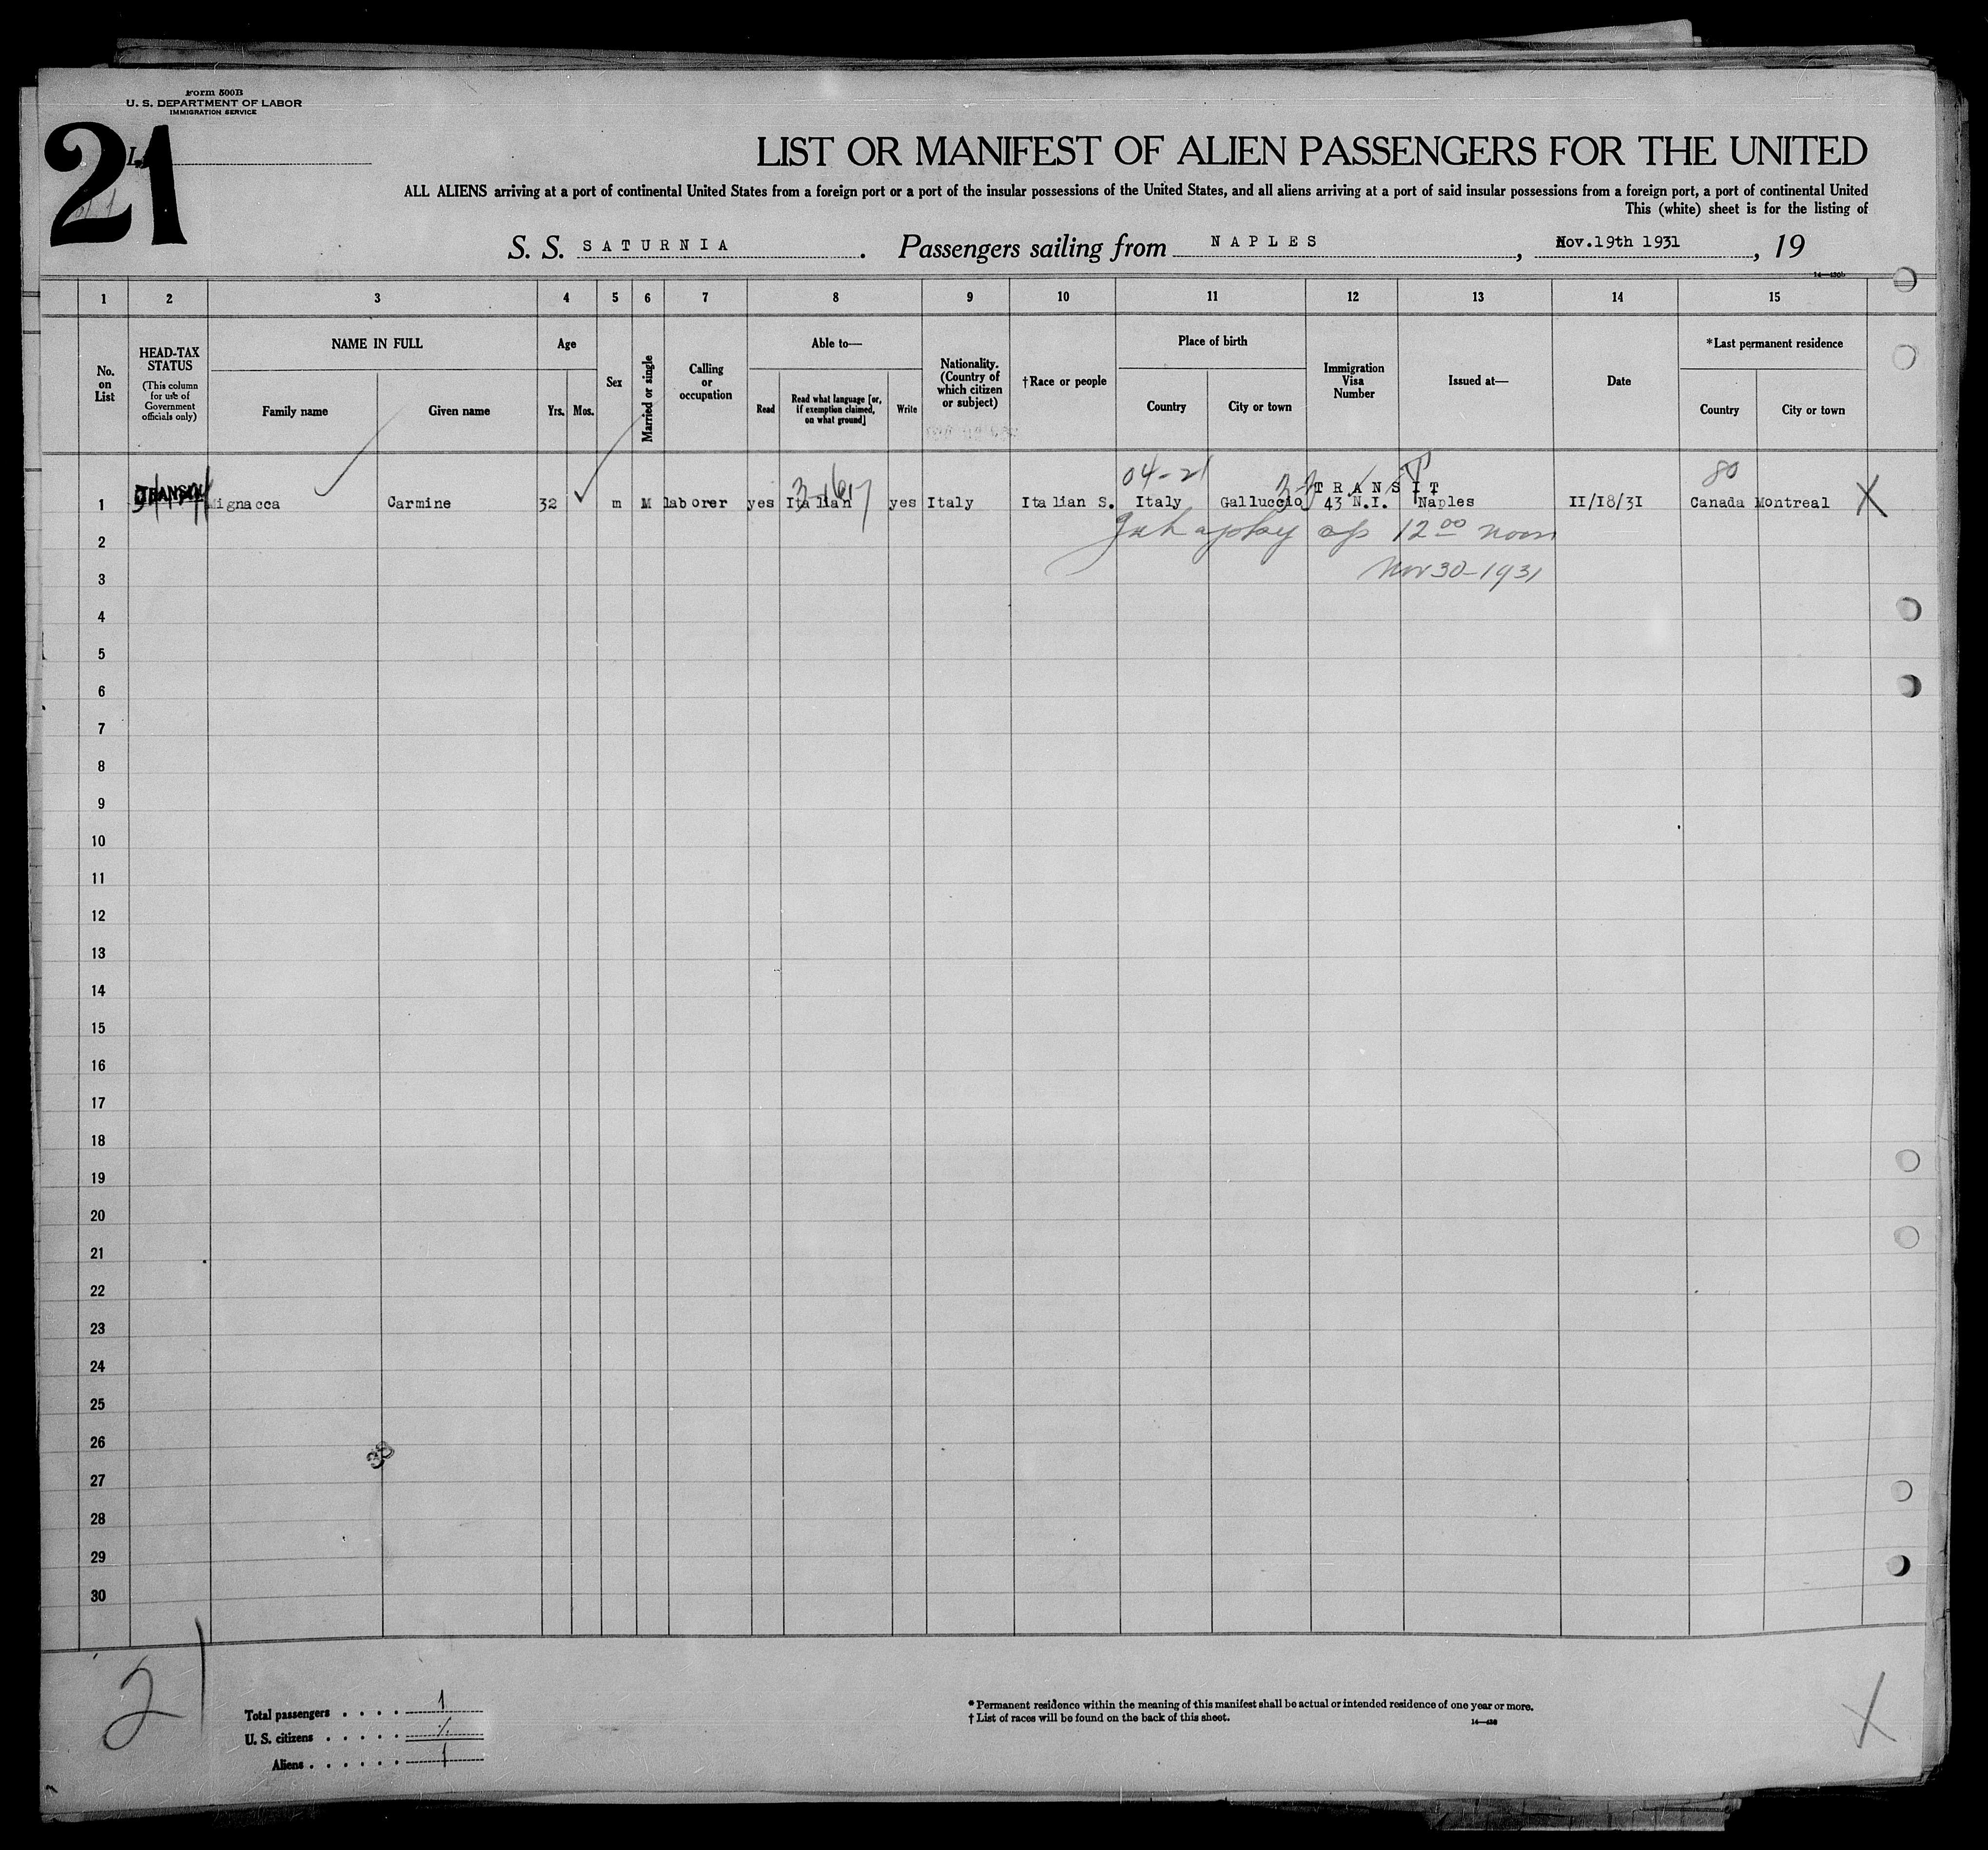 Form 500B
U. S. DEPARTMENT OF LABOR
IMMIGRATION SERVICE
21
LIST OR MANIFEST OF ALIEN PASSENGERS FOR THE UNITED
ALL ALIENS arriving at a port of continental United States from a foreign port or a port of the insular possessions of the United States, and all aliens arriving at a port of said insular possessions from a foreign port, a port of continental United
This (white) sheet is for the listing of
S. S. SATURNIA . Passengers sailing from NAPLES , Nov.19th 1931 , 19
1 2 3 4 5 6 7 8 9 10 11 12 13 14 15
No. on List
HEAD-TAX STATUS
(This column for use of Government officials only)
NAME IN FULL
Family name
Given name
Age
Yrs.
Mos.
Sex
Married or single
Calling or occupation
Able to—
Read
Read what language [or, if exemption claimed, on what ground]
Write
Nationality. (Country of which citizen or subject)
†Race or people
Place of birth
Country
City or town
Immigration Visa Number
Issued at—
Date
*Last permanent residence
Country
City or town
04-21
80
TRANSIT
1 Mignacca Carmine 32 m M laborer yes Italian yes Italy Italian S. Italy Galluccio 43 N.I. Naples II/I8/3I Canada Montreal X
12 00 noon
2
Nov 30-1931
3
4
5
6
7
8
9
10
11
12
13
14
15
16
17
18
19
20
21
22
23
24
25
26
27
28
29
30
21
Total passengers . . . . 1
U. S. citizens . . . . .
Aliens . . . . . . 1
* Permanent residence within the meaning of this manifest shall be actual or intended residence of one year or more.
† List of races will be found on the back of this sheet.
X